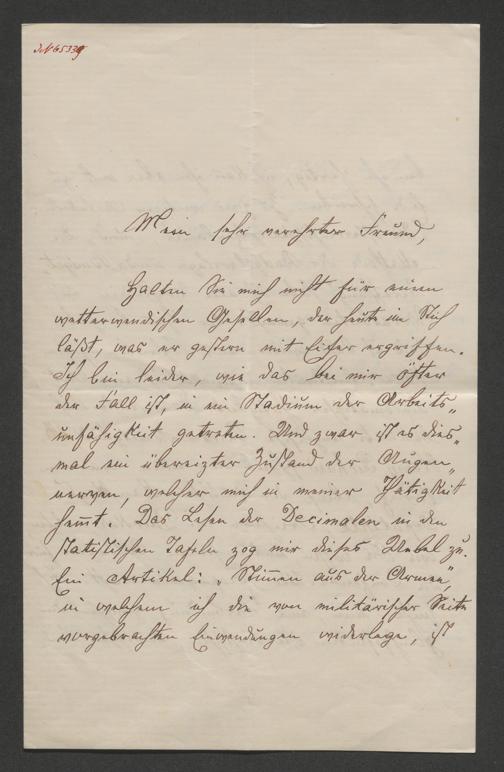 IN 65339
Mein sehr verehrter Freund,
Halten Sie mich nicht für einen
wetterwendischen Gesellen, der heute im Stich
läßt, was er gestern mit Eifer ergriffen.
Ich bin leider, wie das bei mir öfter
der Fall ist, in ein Stadium der Arbeits„
unfähigkeit getreten. Und zwar ist es dies„
mal ein übereizter Zustand der Augen„
nerven, welcher mich in meiner Thätigkeit
hem̄t. Das Lesen der Decimalen in den
statistischen Tafeln zog mir dieses Uebel zu.
Ein Artikel: „Stim̄en aus der Armee",
in welchem ich die von militärischer Seite
vorgebrachten Einwendungen widerlege, ist